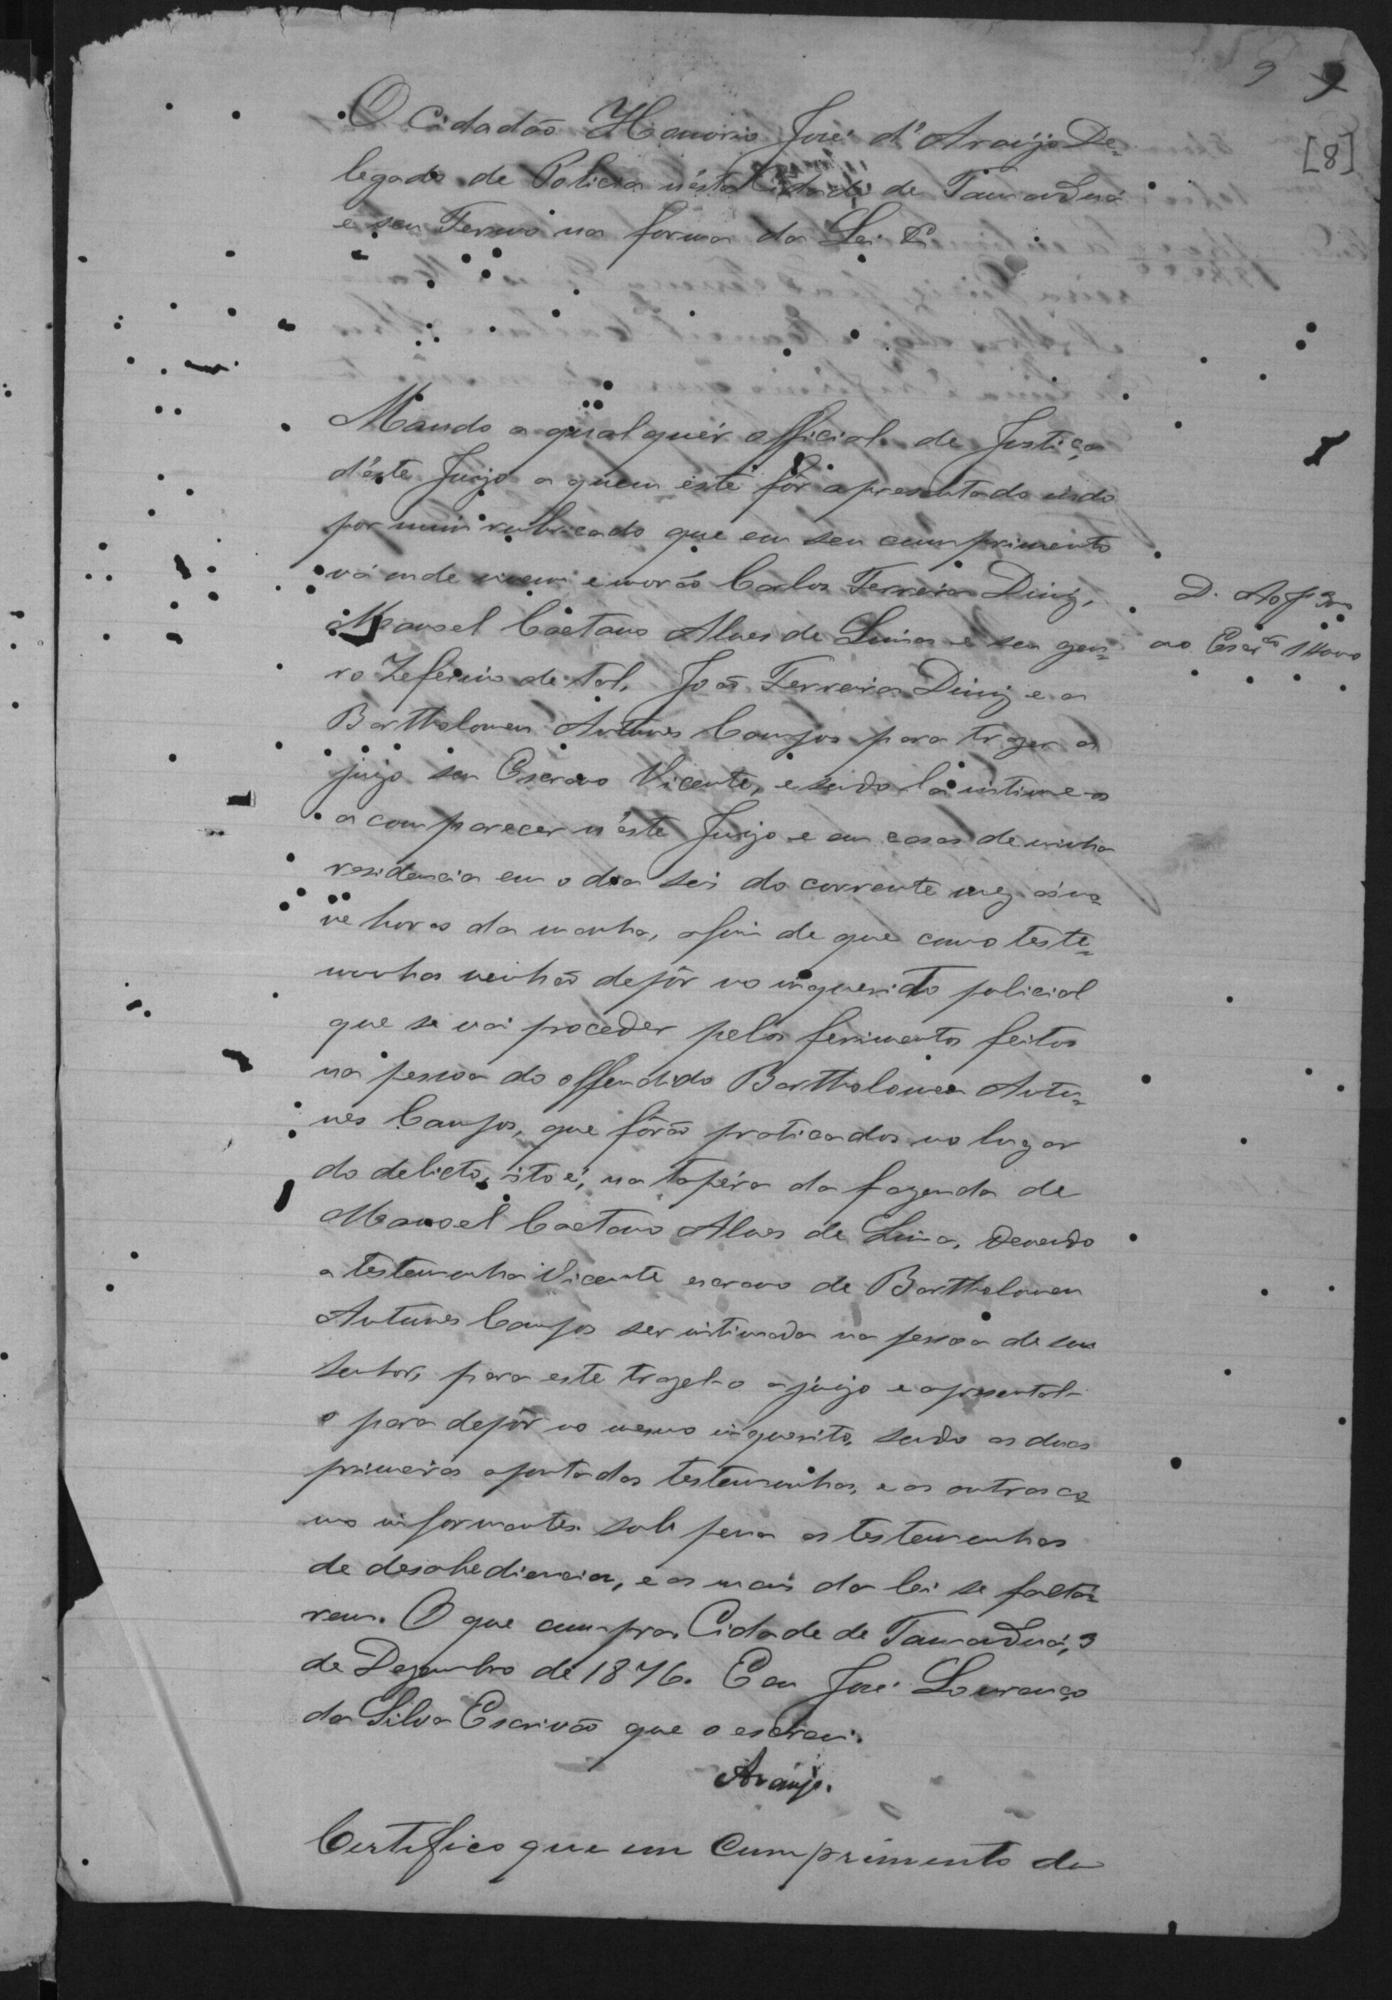 9 9
[8]
O Cidadão Honorio José d'Araujo De=
legado de Policia n'ésta Cidade de Tamanduá
e seu Termo na forma da Lei &
Mando a qualquér official de Justiça
d'éste Juizo a quem éste fôr apresentado indo
por mim rubricado que em seu cumprimento
vá onde vivem e morão Carlos Ferreira Diniz,
Manoel Caetano Alves de Lima e seu gen=
ro Zeferino de tal, João Ferreira Diniz e a
Bartholomeu Antunes Campos para trazer a
juizo seu Escravo Vicente, e sendo lá intime-os
a comparecer n'éste Juizo e em casa de minha
residencia em o dia seis do corrente mez ás no=
ve horas da manhã, afim de que como teste=
munhas venhão depôr no inquerido policial
que se vai proceder pelos ferimentos feitos
na pessoa do offendido Bartholomeu Antu=
nes Campos, que fôrão praticados no lugar
do delicto, isto é, na tapéra da fazenda de
Manoel Caetano Alves de Lima, devendo
a testemunha Vicente escravo de Bartholomeu
Antunes Campos ser intimada na pessoa de seu
senhor, para este trazel-o a juizo e apresental-
o para depôr no mesmo inquerito, sendo as duas
primeiras apontadas testemunhas, e as outras co=
mo informantes sob pena as testemunhas
de desobediencia, e as mais da lei se faltá=
rem. O que cumpra. Cidade de Tamanduá, 3
de Dezembro de 1876. E eu José Lourenço
da Silva Escrivão que o escrevi.
Araujo.
Certifico que em Cumprimento do
D.
ao Escr.ᵃᵐ